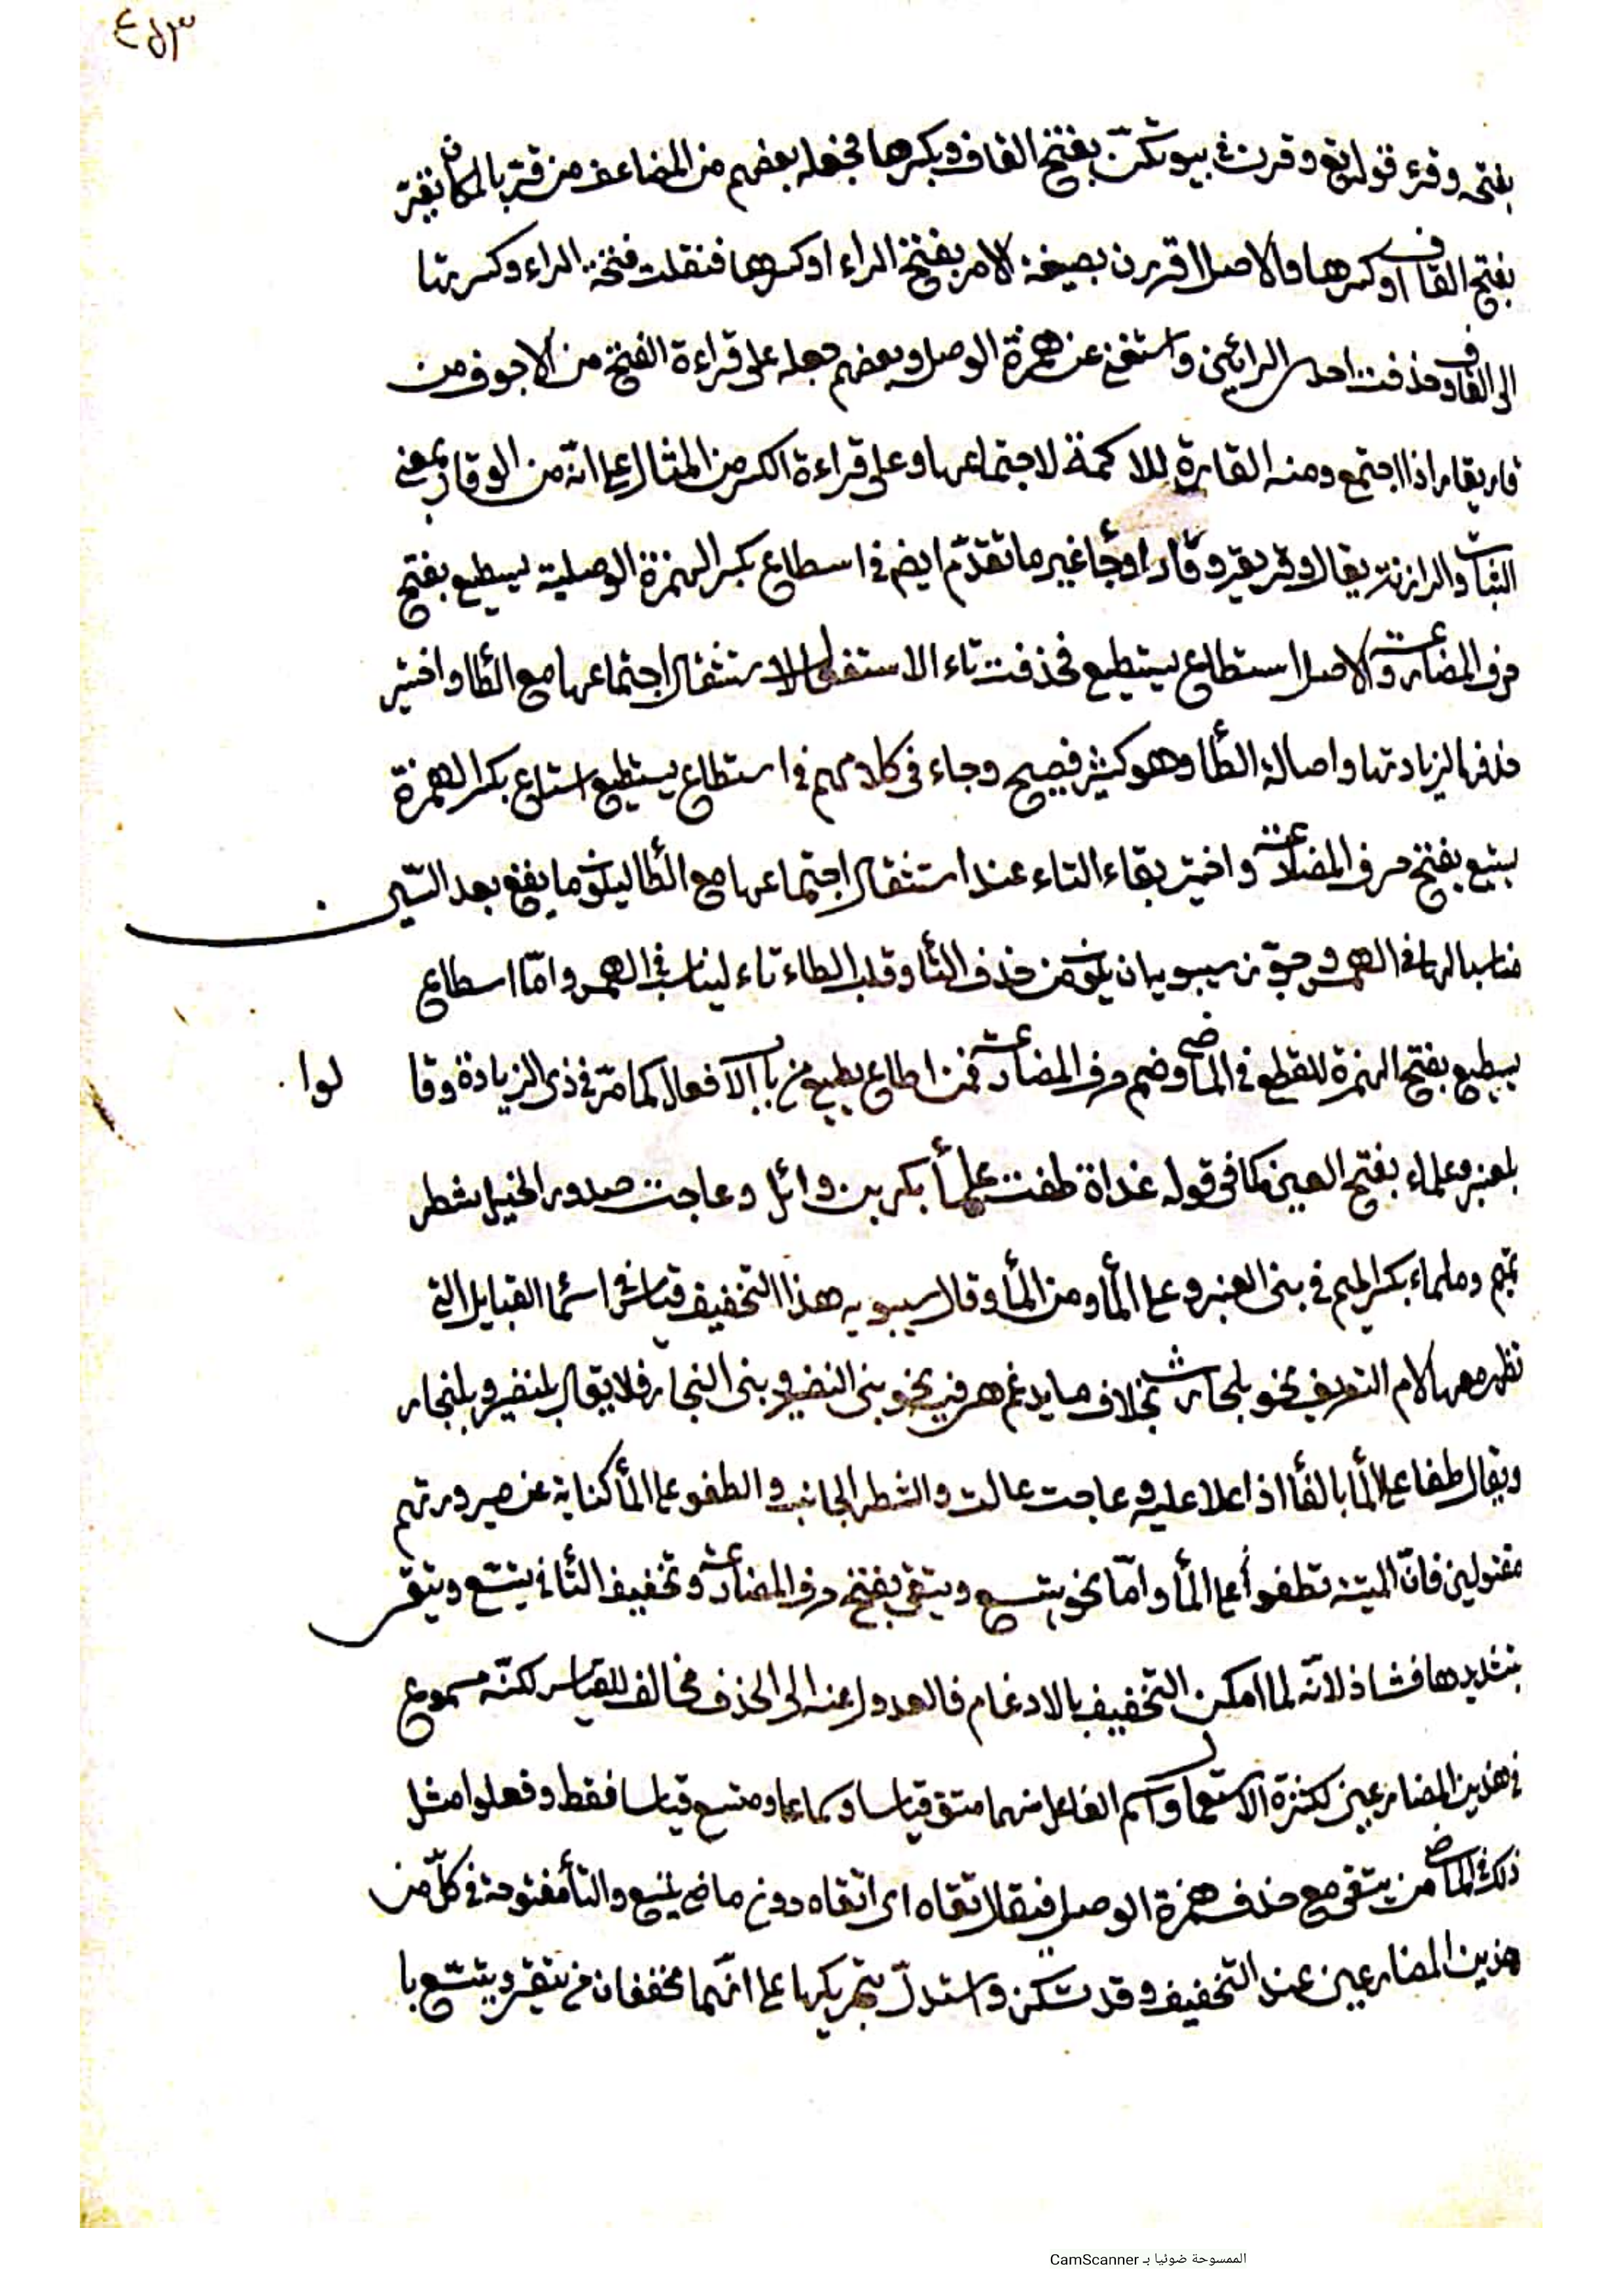 ٤٥٣
بفتحه وقرء قوله تع وقرن في بيوتكنّ بفتح القاف وبكسرها فجعله بعضهم من المضاعف من قرّ بالمكان يقرّ
بفتح القاف او كسرها والاصل اقررن بصيغة الامر بفتح الراء او كسرها فنقلت فتحة الراء وكسرتها
الى القاف وحذفت احدى الرائين واستغنى عن همزة الوصل وبعضهم جعله على قراءة الفتح من الاجوف من
قار يقار اذا اجتمع ومنه القارة للاكمة لاجتماعها وعلى قراءة الكسر من المثال على انه من الوقار بمعنى
الثبات والرزانة يقال وقر يقر وقارا وجاء غير ما تقدّم ايض في اسطاع بكسر الهمزة الوصلية يسطيع بفتح
حرف المضارعة والاصل استطاع يستطيع فحذفت تاء الاستفعال لاستثقال اجتماعها مع الطاء واختير
حذفها لزيادتها واصالة الطاء وهو كثير فصيح وجاء في كلامهم في استطاع يستطيع استاع بكسر الهمزة
يستيع بفتح حرف المضارعة واختير بقاء التاء عند استثقال اجتماعها مع الطاء ليكون ما يقع بعد السّين
مناسبا لها في الهمس وجوّز سيبويه ان يكون من حذف التاء وقلب الطاء تاء ليناسب في الهمس وامّا اسطاع
يسطيع بفتح الهمزة للقطع في الماضي وضم حرف المضارعة فمن اطاع يطيع من باب الافعال كما مرّ في ذي الزيادة وقا لوا
بلعنبر وعلماء بفتح العين كما في قوله غداة طفت علماء بكر بن وائل وعاجت صدور الخيل شطر
تميم وملماء بكسر الميم في بني العنبر وعلى الماء ومن الماء وقال سيبويه هذا التخفيف قياس في اسماء القبايل التي
تظهر معها لام التعريف نحو بلحارث بخلاف ما يدغم هي فيه نحو بني النضير وبني النجار فلا يقال بلنضير وبلنجار
ويقال طفا على الماء بالفاء اذا علا عليه وعاجت عالت والشطر الجانب والطفو على الماء كناية عن صيرورتهم
مقتولين فانّ الميتة تطفو على الماء وامّا نحو يتسع ويتقي بفتح حرف المضارعة وتخفيف التاء في يتّسع ويتّقي
بتشديدها فشاذ لانّه لما امكن التخفيف بالادغام فالعدول عنه الى الحذف مخالف للقياس لكنّه مسموع
في هذين المضارعين لكثرة الاستعمال واسم الفاعل منهما متق قياسا وسماعا ومتسع قياسا فقط وفعلوا مثل
ذلك في الماضي من يتقي مع حذف همزة الوصل فيقال تقاه اى اتقاه دون ماضي يتسع والتاء مفتوحة في كلّ من
هذين المضارعين عند التخفيف وقد تسكن واستدلّ بتحريكها على انّهما مخففان من يتّقي ويتّسع با
الممسوحة ضوئيا بـ CamScanner